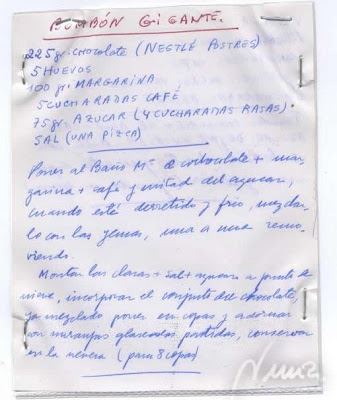 BOMBÓN GIGANTE.
225 gr. CHOCOLATE (NESTLÉ POSTRES)
5 HUEVOS
100 gri MARGARINA
5 CUCHARADAS CAFÉ
75 gr. AZUCAR (4 CUCHARADAS RASAS).
SAL (UNA PIZCA)
Poner al Baño Mª de chocolate + mar
garina + café y mitad del azucar,
cuando esté derretido y frio, mezclar
lo con las yemas, una a una remo
viendo.
Montar las claras + sal + azucar a punto de
nieve, incorporar el conjunto del chocolate,
ya mezclado poner en copas y adornar
con naranjas glaseadas partidas, conservar
en la nevera (para 8 copas)